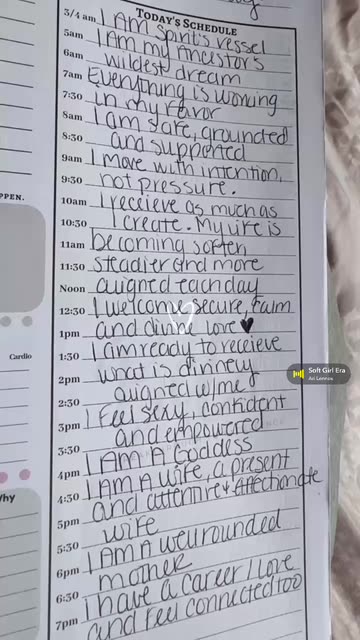 TODAY'S SCHEDULE
3/4 am I AM Spirit's vessel
5am I AM my Ancestor's
6am wildest dream
7am Everything is working
7:30 in my favor
8am I am safe, grounded
8:30 and supported
9am I move with intention,
9:30 not pressure.
PPEN.
10am I receieve as much as
10:30 I create. My life is
11am becoming softer,
11:30 steadier and more
Noon aligned each day
12:30 I welcome secure, calm
1pm and divine love ♥
Cardio
1:30 I am ready to receieve
2pm what is divinely
Soft Girl Era
Ari Lennox
2:30 aligned w/me
3pm I Feel sexy, confident
3:30 and empowered
4pm I AM A Goddess
4:30 I AM A wife, a present
5pm and attentive & Affectionate
Why
5:30 wife
6pm I AM A well rounded
6:30 mother
7pm i have a career I love
and feel connected too